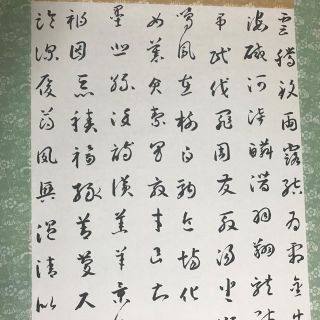 雲騰致雨露結為霜金生
海鹹河淡鱗潛羽翔龍師
弔民伐罪周發殷湯坐朝
鳴鳳在樹白駒食場化
女慕貞潔男效才良知
墨悲絲染詩讚羔羊景
禍因惡積福緣善慶尺
臨深履薄夙興溫凊似